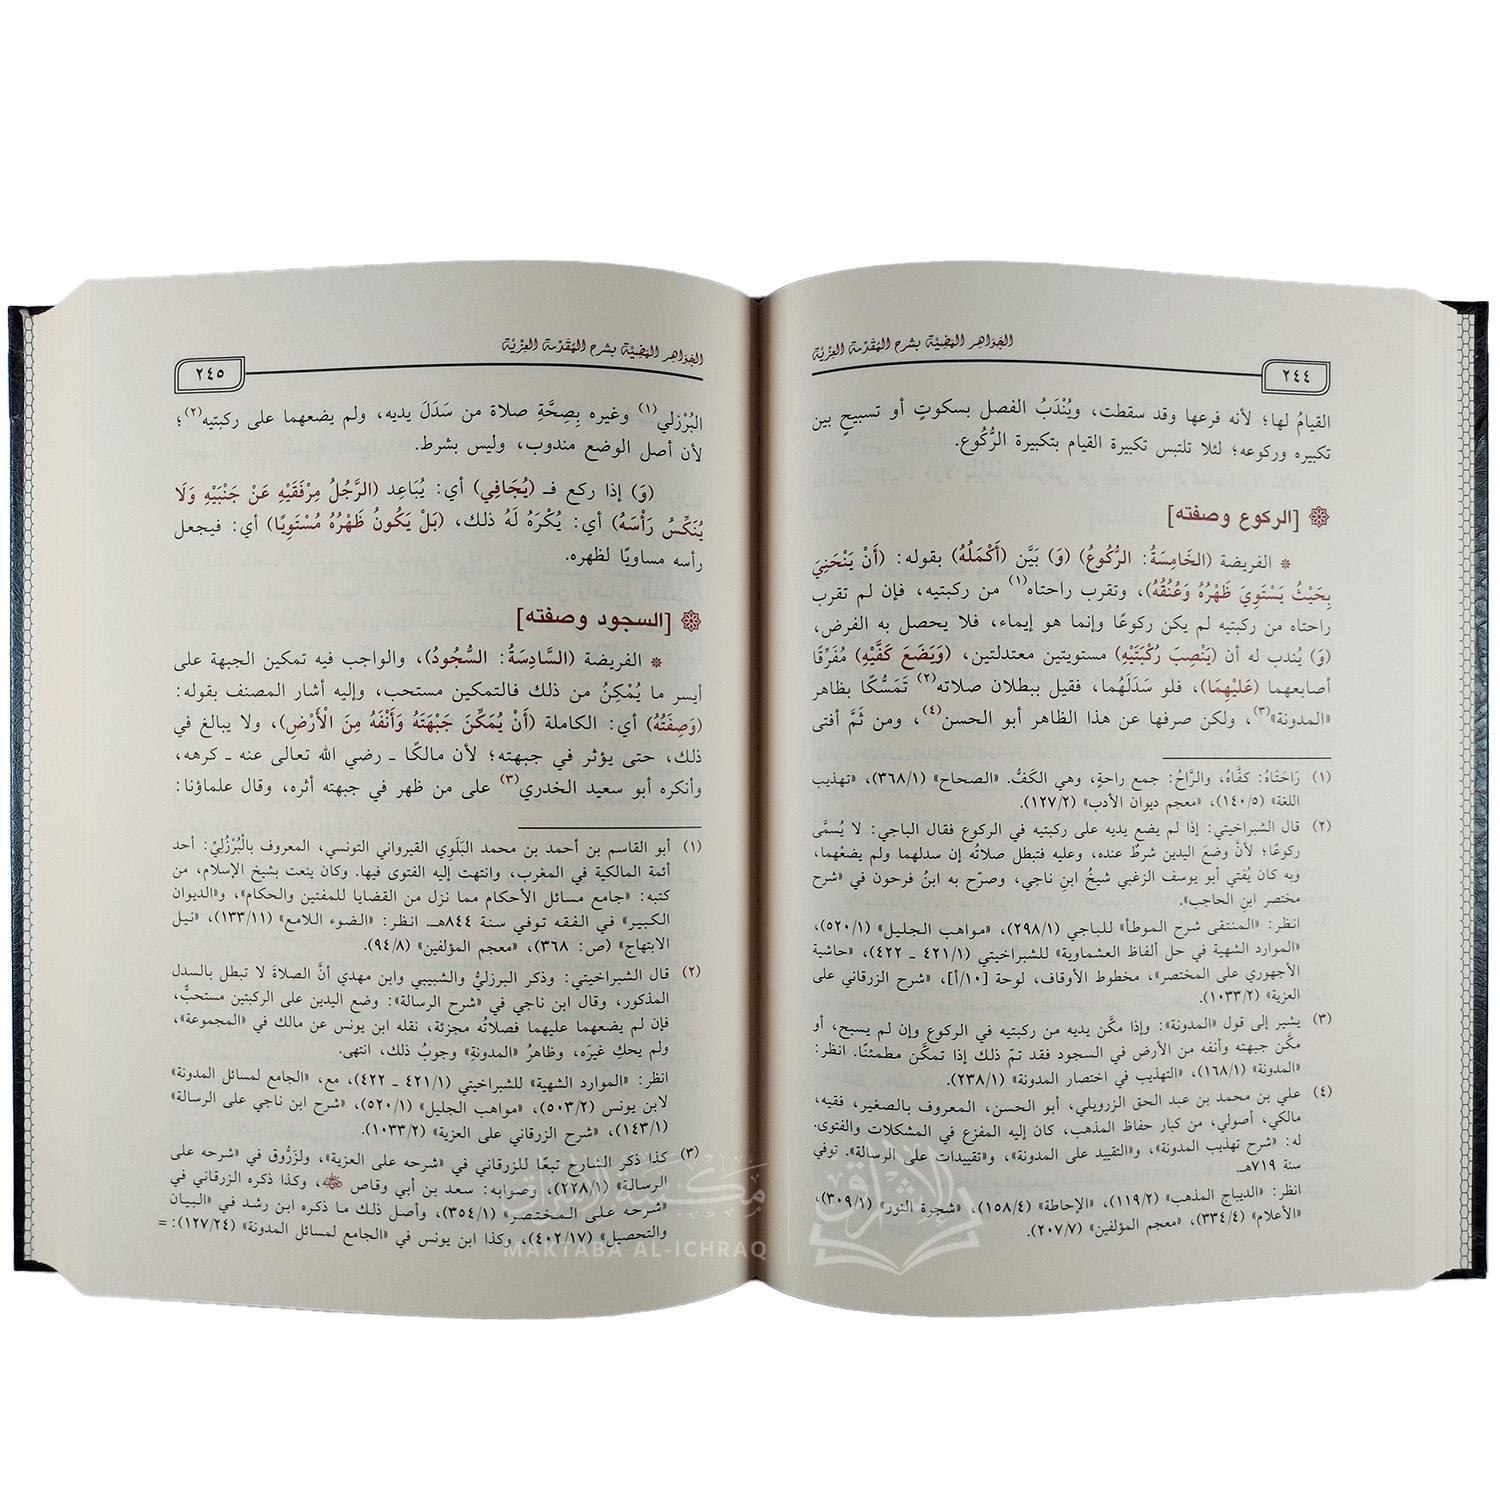 الجواهر المضية بشرح المقدمة العزية
٢٤٤
القيامُ لها؛ لأنه فرعها وقد سقطت، ويُنْدَبُ الفصل بسكوتٍ أو تسبيحٍ بين
تكبيره وركوعه؛ لئلا تلتبس تكبيرة القيام بتكبيرة الرُّكُوع.
[الركوع وصفته]
* الفريضة (الخَامِسَةُ: الرُّكُوعُ) (وَ) بَيَّن (أَكْمَلُهُ) بقوله: (أَنْ يَنْحَنِيَ
بِحَيْثُ يَسْتَوِيَ ظَهْرُهُ وَعُنُقُهُ)، وتقرب راحتاه(١) من ركبتيه، فإن لم تقرب
راحتاه من ركبتيه لم يكن ركوعًا وإنما هو إيماء، فلا يحصل به الفرض،
(وَ) يُندب له أن (يَنْصِبَ رُكْبَتَيْهِ) مستويتين معتدلتين، (وَيَضَعَ كَفَّيْهِ) مُفَرِّقًا
أصابعهما (عَلَيْهِمَا)، فلو سَدَلَهُما، فقيل ببطلان صلاته(٢) تَمَسُّكًا بظاهر
«المدونة»(٣)، ولكن صرفها عن هذا الظاهر أبو الحسن(٤)، ومن ثَمَّ أفتى
(١) رَاحَتَاهُ: كفَّاهُ، والرَّاحُ: جمع راحةٍ، وهي الكَفُّ. «الصحاح» (٣٦٨/١)، «تهذيب
اللغة» (١٤٠/٥)، «معجم ديوان الأدب» (١٢٧/٢).
(٢) قال الشبراخيتي: إذا لم يضع يديه على ركبتيه في الركوع فقال الباجي: لا يُسمَّى
ركوعًا؛ لأنَّ وضعَ اليدين شرطٌ عنده، وعليه فتبطل صلاتُه إن سدلهما ولم يضعْهما،
وبه كان يُفتي أبو يوسف الزغبي شيخُ ابنِ ناجي، وصرّح به ابنُ فرحون في «شرح
مختصر ابنِ الحاجب».
انظر: «المنتقى شرح الموطأ» للباجي (٢٩٨/١)، «مواهب الجليل» (٥٢٠/١)،
«الموارد الشهية في حل ألفاظ العشماوية» للشبراخيتي (٤٢١/١ ـ ٤٢٢)، «حاشية
الأجهوري على المختصر»، مخطوط الأوقاف، لوحة [١٠/أ]، «شرح الزرقاني على
العزية» (١٠٣٣/٢).
(٣) يشير إلى قول «المدونة»: وإذا مكَّن يديه من ركبتيه في الركوع وإن لم يسبح، أو
مكَّن جبهته وأنفه من الأرض في السجود فقد تمّ ذلك إذا تمكَّن مطمئنًا. انظر:
«المدونة» (١٦٨/١)، «التهذيب في اختصار المدونة» (٢٣٨/١).
(٤) علي بن محمد بن عبد الحق الزرويلي، أبو الحسن، المعروف بالصغير، فقيه،
مالكي، أصولي، من كبار حفاظ المذهب، كان إليه المفزع في المشكلات والفتوى.
له: «شرح تهذيب المدونة»، و«التقييد على المدونة»، و«تقييدات على الرسالة». توفي
سنة ٧١٩هـ.
انظر: «الديباج المذهب» (١١٩/٢)، «الإحاطة» (١٥٨/٤)، «شجرة النور» (٣٠٩/١)،
«الأعلام» (٣٣٤/٤)، «معجم المؤلفين» (٢٠٧/٧).
الجواهر المضية بشرح المقدمة العزية
٢٤٥
البُرْزلي(١) وغيره بِصِحَّةِ صلاة من سَدَلَ يديه، ولم يضعهما على ركبتيه(٢)؛
لأن أصل الوضع مندوب، وليس بشرط.
(وَ) إذا ركع فـ (يُجَافِي) أي: يُبَاعِد (الرَّجُلُ مِرْفَقَيْهِ عَنْ جَنْبَيْهِ وَلَا
يُنَكِّسُ رَأْسَهُ) أي: يُكْرَهُ لَهُ ذلك، (بَلْ يَكُونُ ظَهْرُهُ مُسْتَوِيًا) أي: فيجعل
رأسه مساويًا لظهره.
[السجود وصفته]
* الفريضة (السَّادِسَةُ: السُّجُودُ)، والواجب فيه تمكين الجبهة على
أيسر ما يُمْكِنُ من ذلك فالتمكين مستحب، وإليه أشار المصنف بقوله:
(وَصِفَتُهُ) أي: الكاملة (أَنْ يُمَكِّنَ جَبْهَتَهُ وَأَنْفَهُ مِنَ الْأَرْضِ)، ولا يبالغ في
ذلك، حتى يؤثر في جبهته؛ لأن مالكًا ـ رضي الله تعالى عنه ـ كرهه،
وأنكره أبو سعيد الخدري(٣) على من ظهر في جبهته أثره، وقال علماؤنا:
(١) أبو القاسم بن أحمد بن محمد البَلَوِي القيرواني التونسي، المعروف بالْبُرْزُلِيِّ: أحد
أئمة المالكية في المغرب، وانتهت إليه الفتوى فيها. وكان ينعت بشيخ الإسلام، من
كتبه: «جامع مسائل الأحكام مما نزل من القضايا للمفتين والحكام»، و«الديوان
الكبير» في الفقه توفي سنة ٨٤٤هـ. انظر: «الضوء اللامع» (١٣٣/١١)، «نيل
الابتهاج» (ص: ٣٦٨)، «معجم المؤلفين» (٩٤/٨).
(٢) قال الشبراخيتي: وذكر البرزليُّ والشبيبي وابن مهدي أنَّ الصلاةَ لا تبطل بالسدل
المذكور، وقال ابن ناجي في «شرح الرسالة»: وضع اليدين على الركبتين مستحبٌّ،
فإن لم يضعهما عليهما فصلاتُه مجزئة، نقله ابن يونس عن مالك في «المجموعة»،
ولم يحكِ غيرَه، وظاهرُ «المدونةِ» وجوبُ ذلك، انتهى.
انظر: «الموارد الشهية» للشبراخيتي (٤٢١/١ ـ ٤٢٢)، مع، «الجامع لمسائل المدونة»
لابن يونس (٥٠٣/٢)، «مواهب الجليل» (٥٢٠/١)، «شرح ابن ناجي على الرسالة»
(١٤٣/١)، «شرح الزرقاني على العزية» (١٠٣٣/٢).
(٣) كذا ذكر الشارح تبعًا للزرقاني في «شرحه على العزية»، ولزَرُّوق في «شرحه على
الرسالة» (٢٢٨/١)، وصوابه: سعد بن أبي وقاص ﵁، وكذا ذكره الزرقاني في
«شرحه على المختصر» (٣٥٤/١)، وأصل ذلك ما ذكره ابن رشد في «البيان
والتحصيل» (٤٠٢/١٧)، وكذا ابن يونس في «الجامع لمسائل المدونة» (١٢٧/٢٤): =
مكتبة الإشراق
MAKTABA AL-ICHRAQ
الإشراق